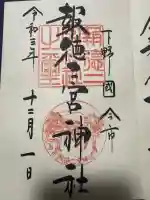 下野國今市
報徳二宮神社
令和三年十二月一日